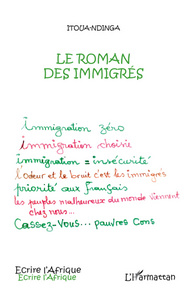 ITOUA-NDINGA
LE ROMAN
DES IMMIGRÉS
Immigration zéro
immigration choisie
immigration = insécurité
l'odeur et le bruit c'est les immigrés
priorité aux Français
les peuples malheureux du monde viennent
chez nous...
Cassez-Vous... pauvres Cons
Ecrire l'Afrique
Ecrire l'Afrique
L'Harmattan